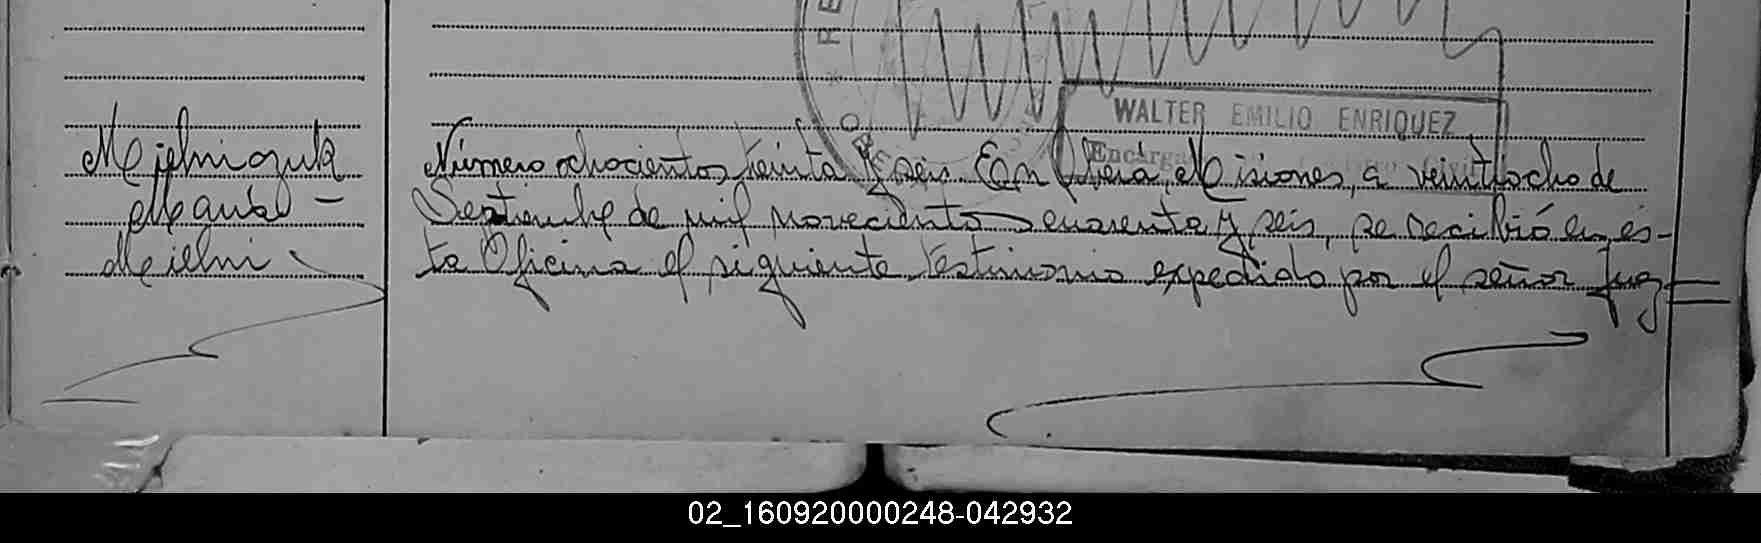 RE
O
WALTER EMILIO ENRIQUEZ
Mielniczuk
Número ochocientos treinta y seis. En Oberá, Misiones, a veintiocho de
Septiembre de mil novecientos cuarenta y seis, se recibió en és-
Mielni
ta Oficina el siguiente testimonio expedido por el señor Juez
02_160920000248-042932